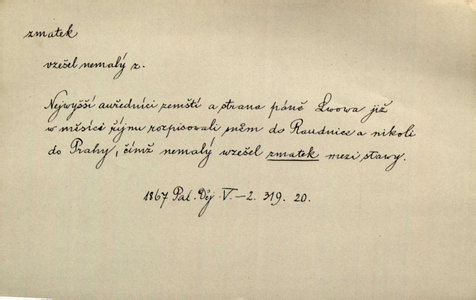 zmatek
vzešel nemalý z.
Nejwyšší auředníci zemští a strana páně Lwowa již
w měsíci říjnu rozpisovali sněm do Raudnice a nikoli
do Prahy, čímž nemalý wzešel zmatek mezi stawy.
1867 Pal. Děj. V.–2. 319. 20.